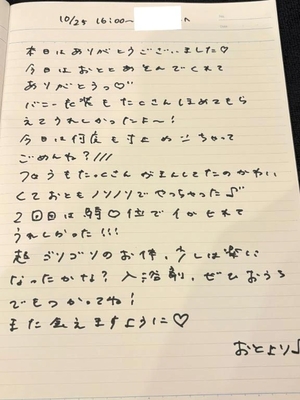 10/25 16:00~ へ
本日はありがとうございました♡
今日はおととあそんでくれて
ありがとうっ♡
バニー衣装もたくさんほめてもら
えてうれしかったよ〜!
今日は何度も寸止めいちゃって
ごめんね?///
フロうもたっくさんがまんしてたのかわい
くておともノリノリでやっちゃった♪
2回目は騎♡位でイかせれて
うれしかった!!!
超ゴリゴリのお体、少しは楽に
なったかな?入浴剤、ぜひおうち
でもつかってね!
また会えますように♡
おとより♪